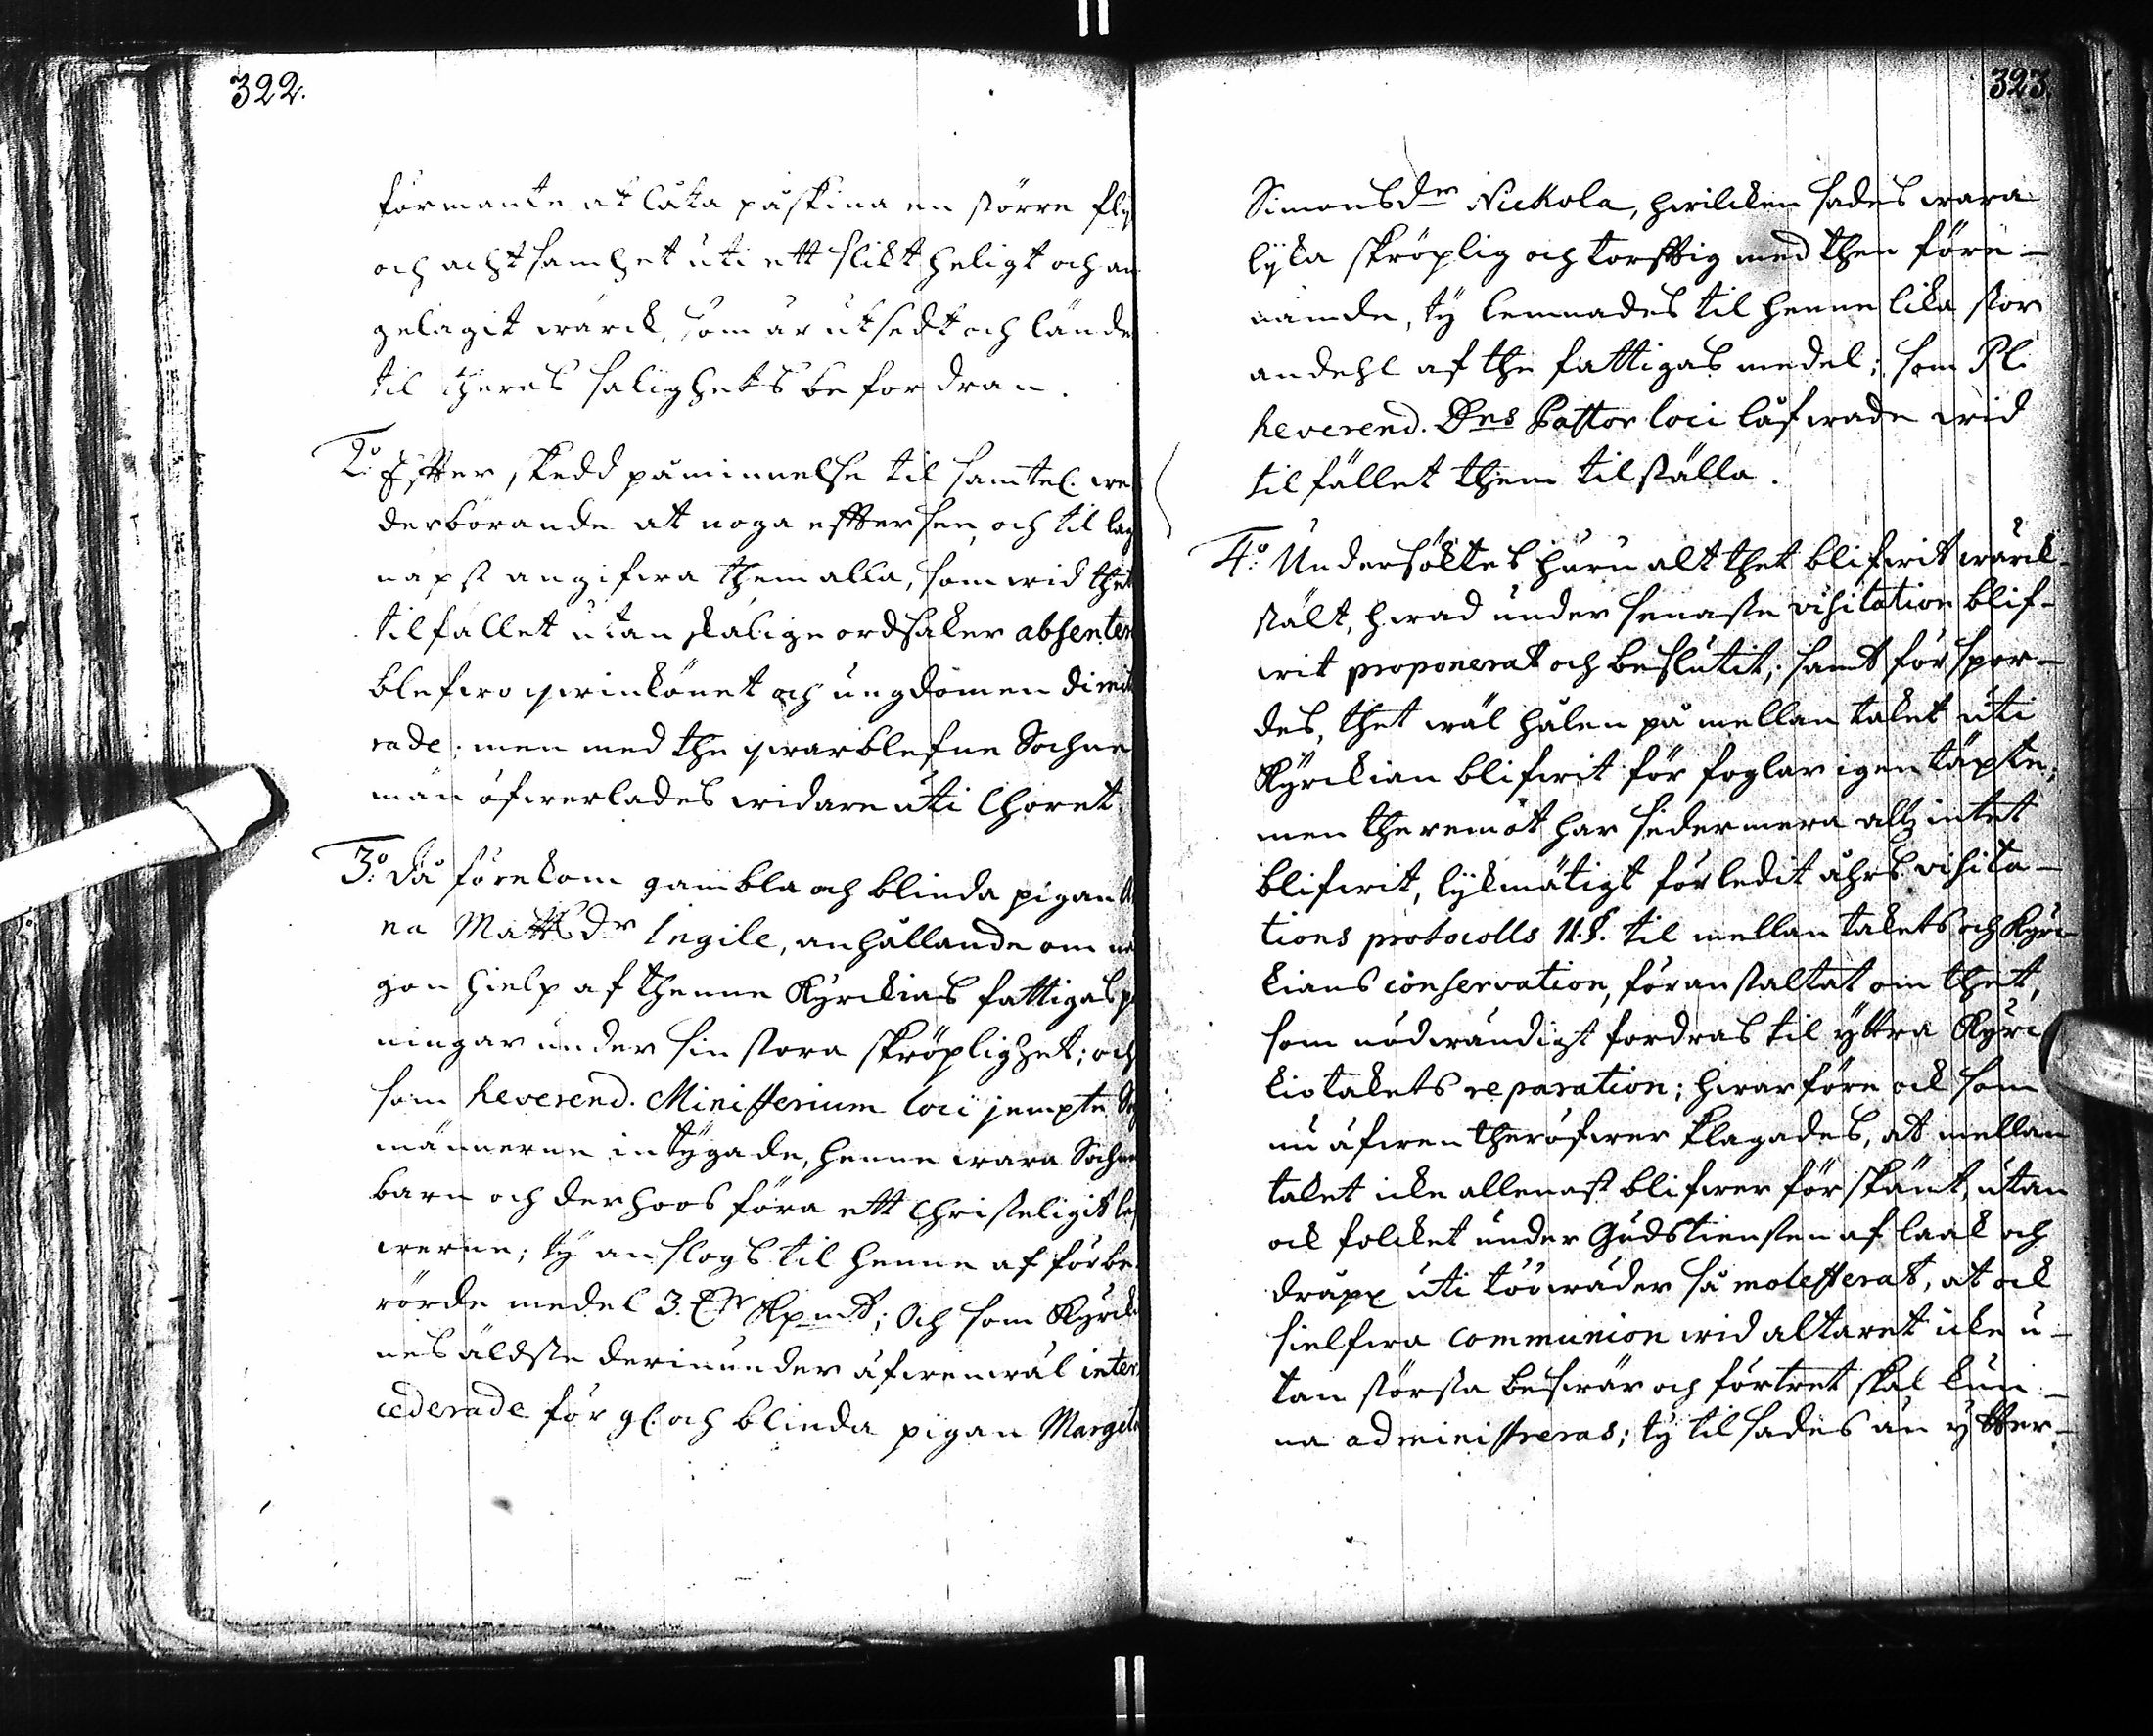 322.
förmante at låta påskina en större fly
och achtsamhet uti ett slikt heligt och an
gelägit wärck, som är utsedt och lände
til theras salighets befordran.
2:o Efter skedd påminnelse til samtel. we
derbörande at noga effterse, och til lag
napst angifwa them alla, som wid thet
tilfället utan skälige ordsaker absenter
blefwo qwinkönet och ungdomen dimit
rade; men med the qwarblefne Sochne
män öfwerlades widare uti Choret.
3:o Då förekom gambla och blinda pigan
na Matts dr Ingile, anhållande om nå
gon hielp af thenne Kyrckias fattigas pe
ningar under sin stora skröplighet; och
som Reverend. Ministerium loci jempte
männerne intygade, henne wara Sochne
barn och derhoos föra ett Christeligit lef
werne; ty anslogs til henne af förbe
rörde medel 3. Dr Kpmt; Och som Kyrck
nes äldste derinunder äfwenwäl inter
cederade för gl. och blinda pigan Margeta
323
Simonsdr Nickola, hwilcken sades wara
lyka skröplig och torfftig med then före-
nämde, ty lemnades til henne lika stor
andehl af the fattigas medel; som Pl.
Reverend. Dns Pastor loci låfwade wid
tilfället them tilställa.
4:o Undersöktes huru alt thet blifwit wärck-
stält, hwad under senaste visitation blif-
wit proponerat och beslutit; samt förspor-
des, thet wäl hålen på mellan taket uti
Kyrckian blifwit för foglar igen täpte;
men theremot har sedermera allz intet
blifwit, lykmätigt förledit åhrs visita-
tions protocolls 11. §. til mellan takets och Kyrc-
kians conservation, föranstaltat om thet,
som nödwändigt fordras til yttra Kyrc
kiotakets reparation; hwarföre ock som
nu äfwen theröfwer klagades, at mellan
taket icke allenast blifwer förskämt, utan
ock folcket under Gudstiensten af laak och
drapp uti töövväder så molesterat, at ock
sielfwa communion wid altaret icke u-
tan största beswär och förtret skal kun-
na administreras; ty tilsades än ytter-